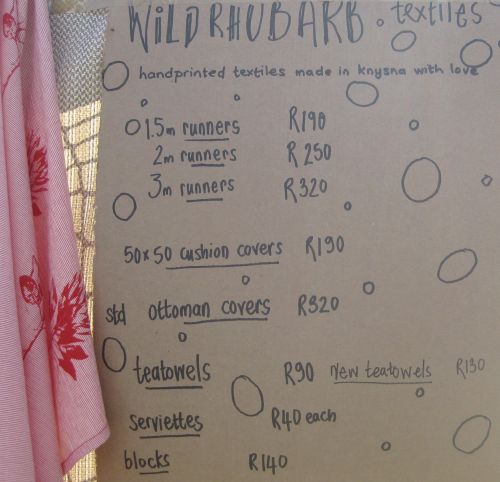 WILD RHUBARB. textiles
handprinted textiles made in knysna with love
1.5m runners R190
2m runners R 250
3m runners R320
50x50 cushion covers R190
std ottoman covers R320
teatowels R90 New teatowels R130
serviettes R40 each
blocks R140